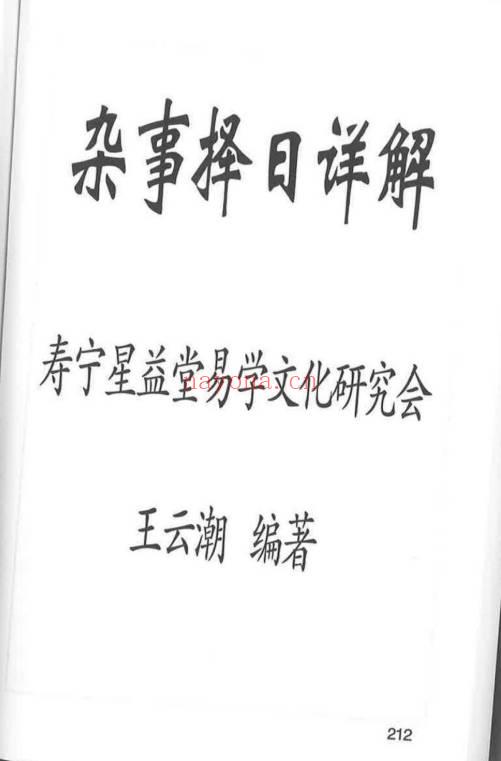 杂事择日详解
寿宁星益堂易学文化研究会
nayona.cn
王云潮 编著
212